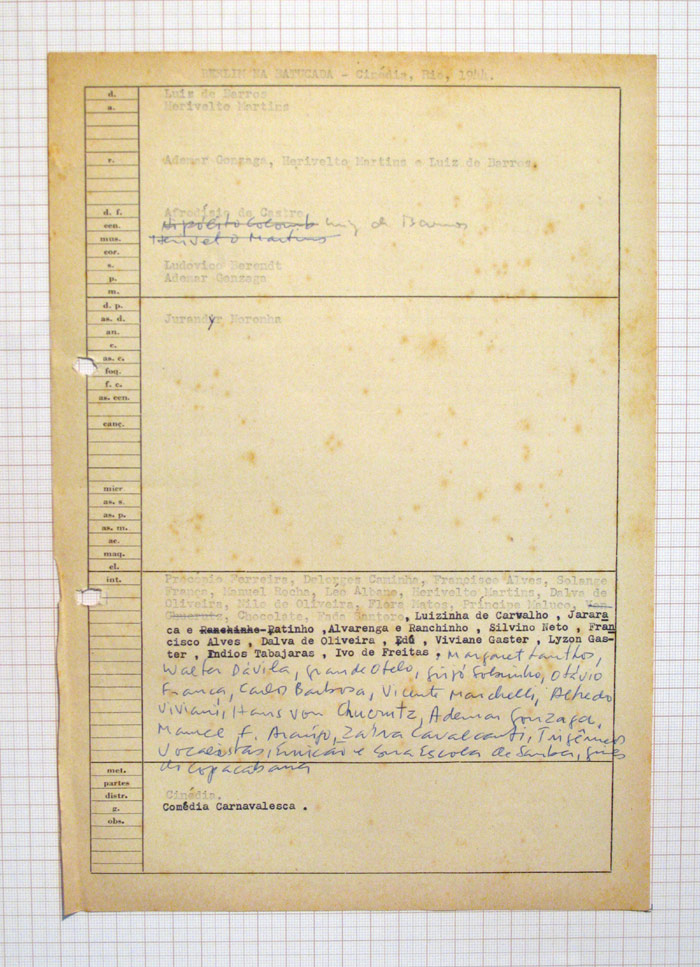 BERLIM NA BATUCADA - Cinédia, Rio, 1944.
d. Luiz de Barros
a. Herivelto Martins
r. Ademar Gonzaga, Herivelto Martins e Luiz de Barros.
d. f. Afrodísio de Castro
cen. Hipólito Colomb Luiz de Barros
mus. Herivelto Martins
cor.
s. Ludovico Berendt
p. Ademar Gonzaga
m.
d. p.
as. d. Jurandyr Noronha
an.
c.
as. c.
foq.
f. c.
as. cen.
canç.
micr.
as. s.
as. p.
as. m.
ac.
maq.
el.
int. Procopio Ferreira, Delorges Caminha, Francisco Alves, Solange
França, Manuel Rocha, Leo Albano, Herivelto Martins, Dalva de
Oliveira, Nilo de Oliveira, Flora Matos, Príncipe Maluco, Von
Chucrutz, Chocolate, Luizinha de Carvalho , Jarara
ca e Ranchinho Ratinho ,Alvarenga e Ranchinho , Silvino Neto , Fran
cisco Alves , Dalva de Oliveira , Edú , Viviane Gaster , Lyzon Gas-
ter , Indios Tabajaras , Ivo de Freitas , Margaret Lanthos,
Walter Dávila, Grande Otelo, Grijó Sobrinho, Otávio
França, Carlos Barbosa, Vicente Marchelli, Alfredo
Viviani, Hans von Chucrutz, Ademar Gonzaga,
Manoel F. Araujo, Zaira Cavalcanti, Trigêmeos
Vocalistas, e sua Escola de Samba, girls
de Copacabana
met.
partes
distr. Cinédia.
g. Comédia Carnavalesca .
obs.